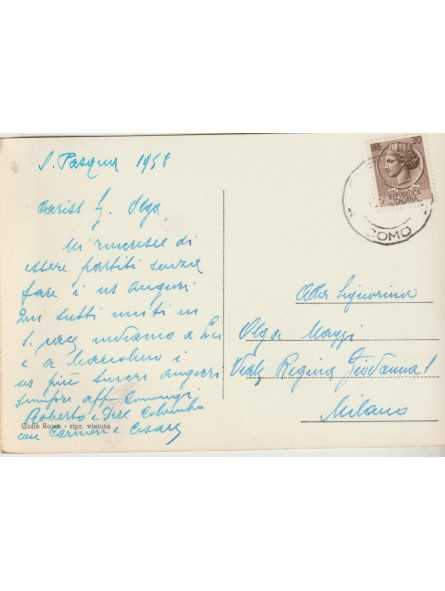 S. Pasqua 1958
Cariss Olga,
Mi rincresce di
essere partiti senza
fare i ns auguri
Qui tutti uniti in
S. mandiamo a
e a i
ns più sinceri auguri
sempre aff
Roberto e Colombo
con Carmen e Cesare
Colle Rossa - ripr. vietata
ITALIANA
COMO
Alla Signorina
Olga Mazzi
Viale Regina Giovanna 1
Milano